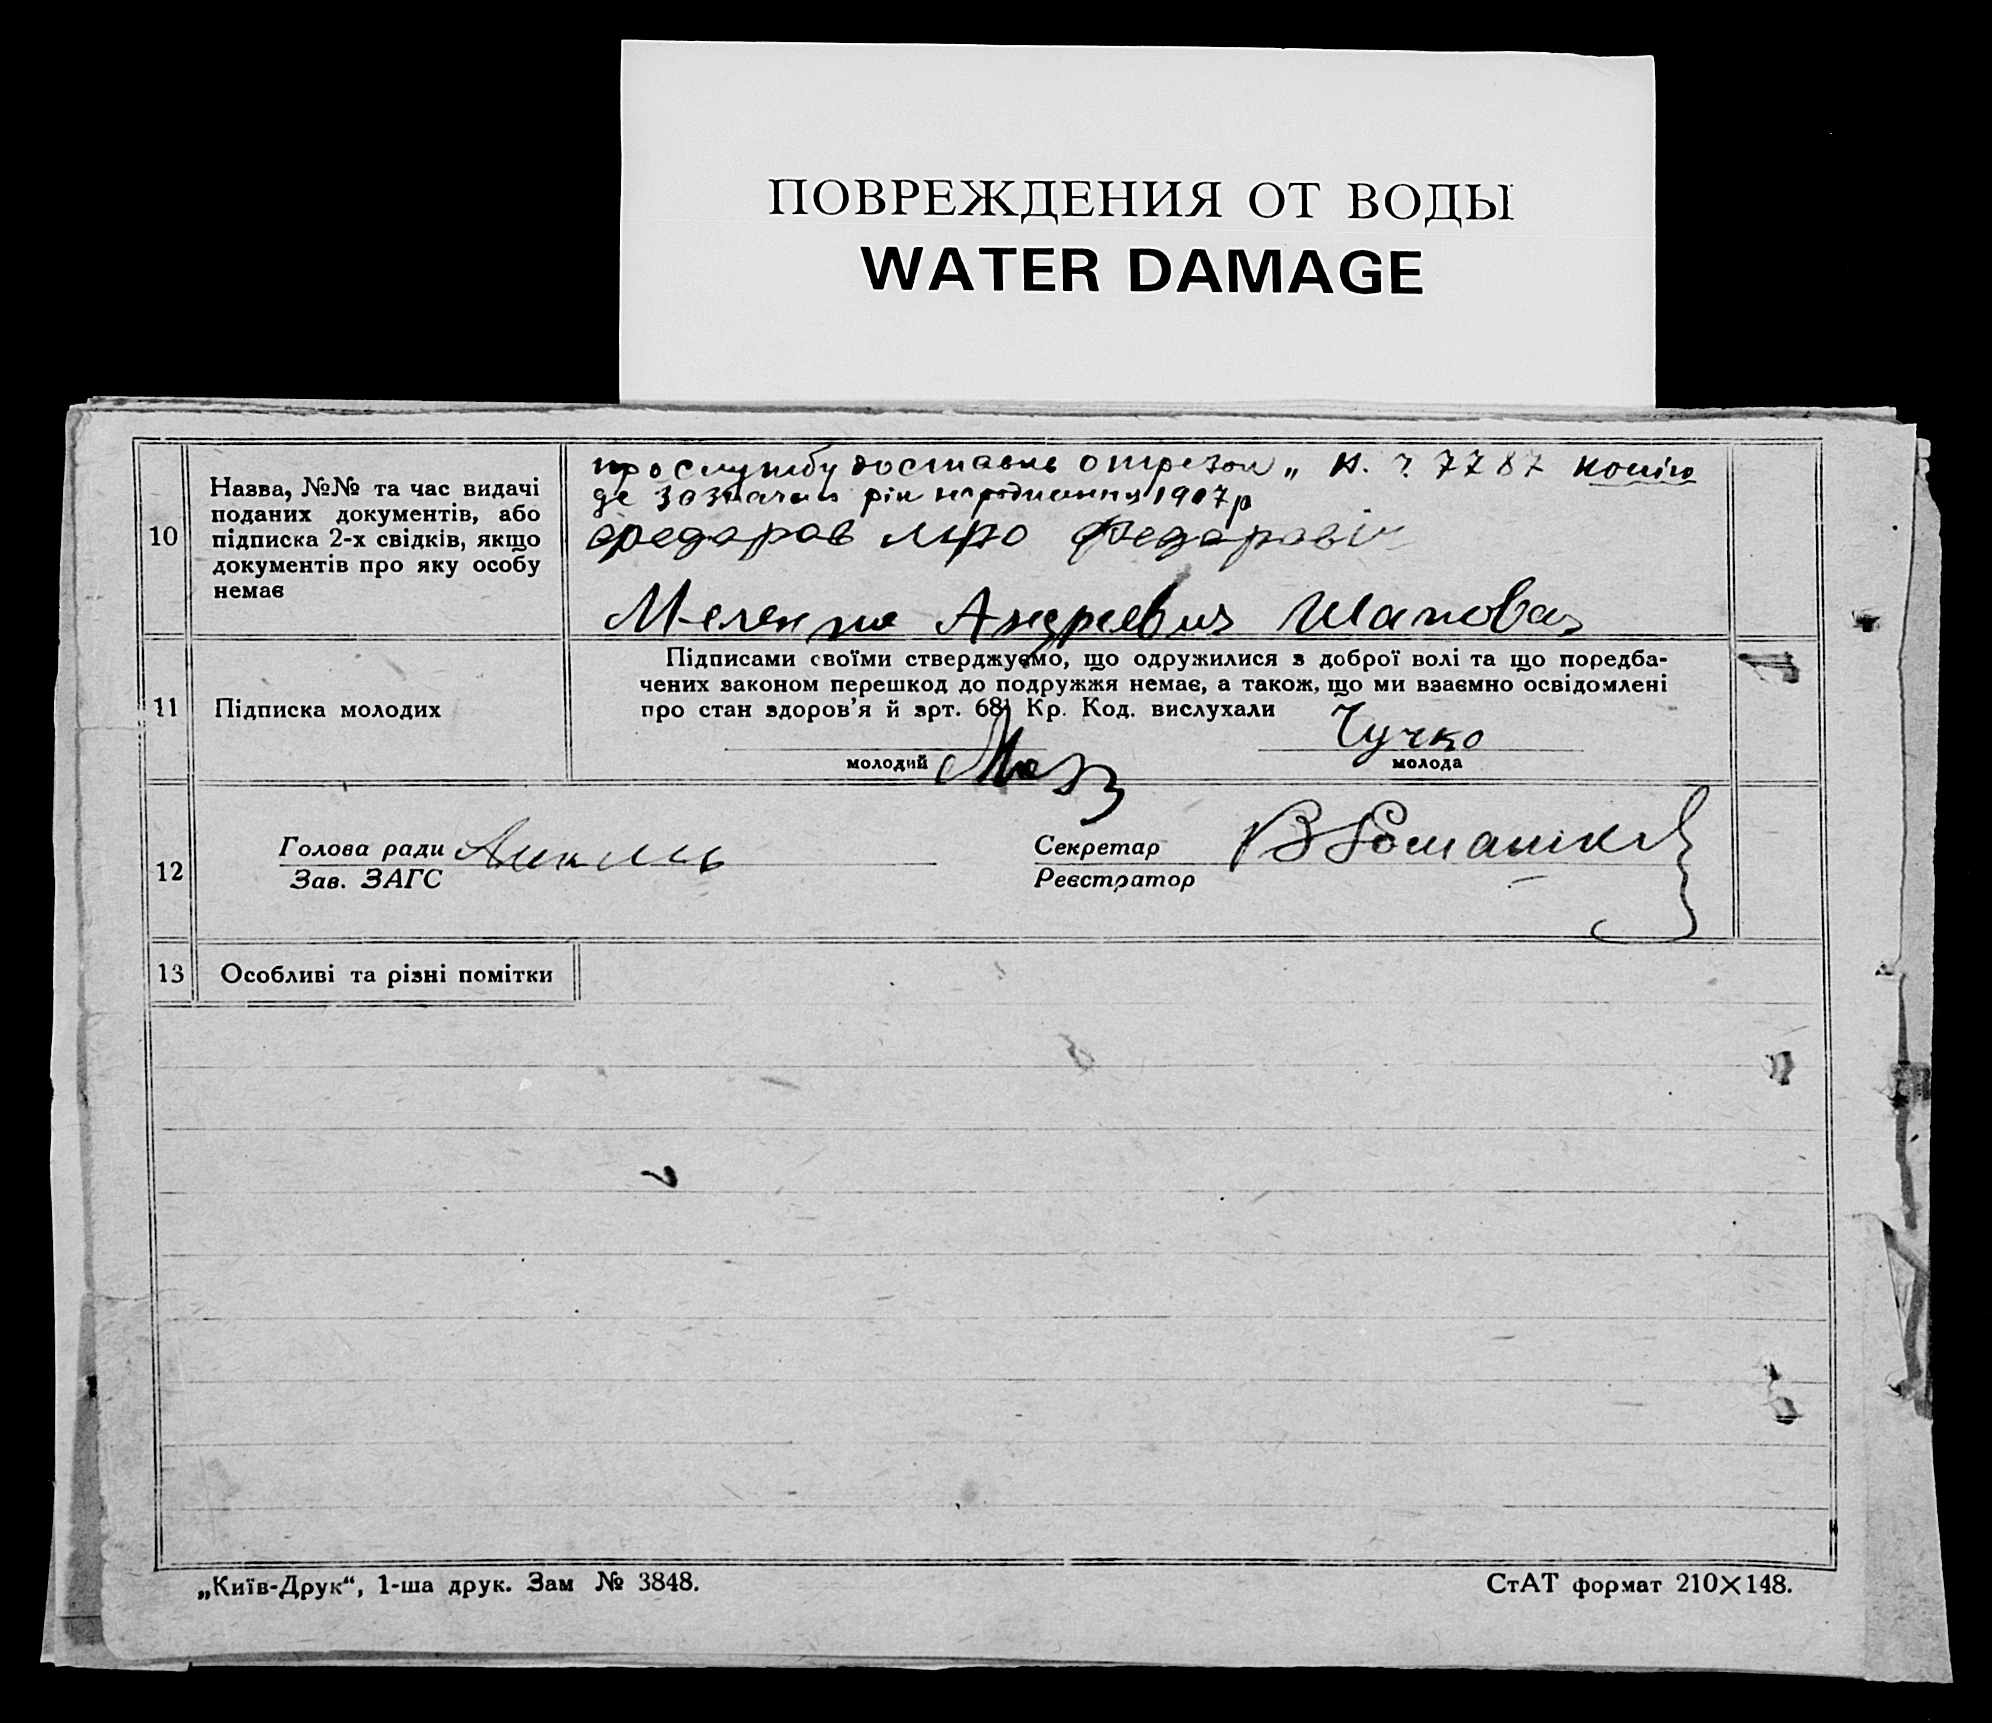 ПОВРЕЖДЕНИЯ ОТ ВОДЫ
WATER DAMAGE
10
Назва, №№ та час видачі
поданих документів, або
підписка 2-х свідків, якщо
документів про яку особу
немає
про службу 7787 копію
де зазначен рік народження 1907 р
Федаров
Андреевич Шаповал
11
Підписка молодих
Підписами своїми стверджуємо, що одружилися з доброї волі та що поредба-
чених законом перешкод до подружжя немає, а також, що ми взаємно освідомлені
про стан здоров'я й арт. 68 Кр. Код. вислухали
Чучко
молодий
молода
12
Голова ради
Зав. ЗАГС
Секретар
Реєстратор
13
Особливі та різні помітки
„Київ-Друк“, 1-ша друк. Зам № 3848.
СтАТ формат 210×148.